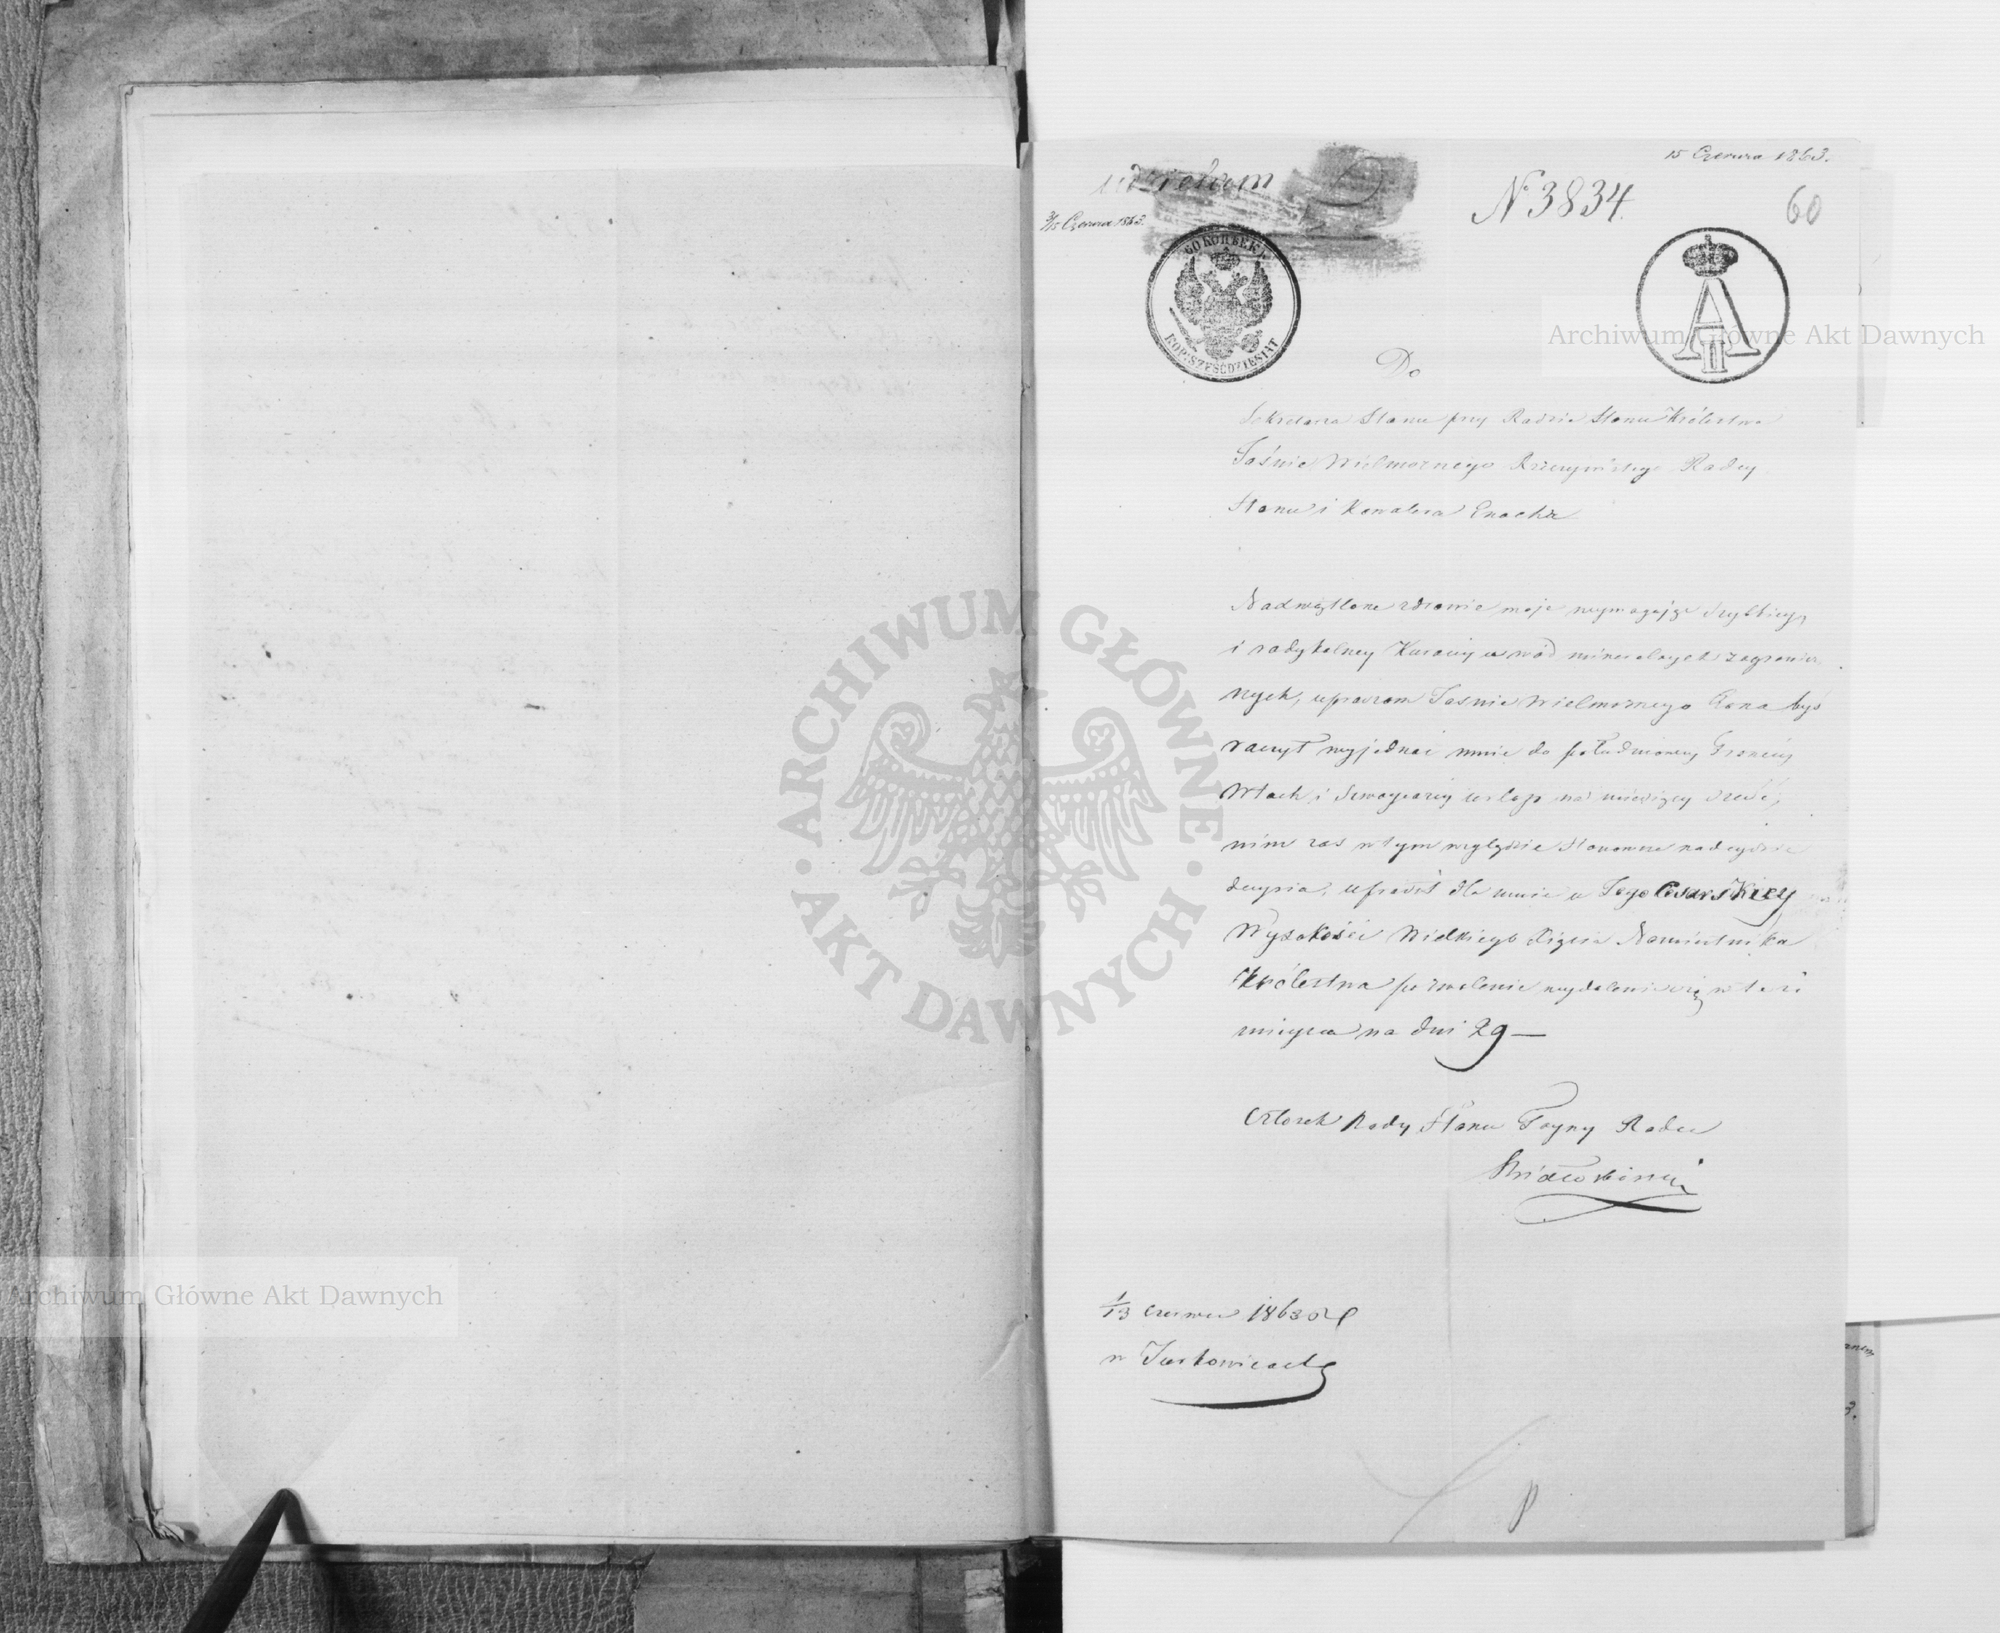 15 Czerwca 1863.
udzielam
3/15 Czerwca 1863.
N 3834.
60
60 KOPIEEK
KOP: SZESCDZIESIĄT
A II
Do
Sekretarza Stanu przy Radzie Stanu Królestwa
Jaśnie Wielmożnego Rzeczywistego Radcy
Stanu i Kawalera Enocha
Nadwątlone zdrowie moje wymagając szybkiey
i radykalney Kuracyi u wód mineralnych zagranicz
nych, upraszam Jaśnie Wielmożnego Pana byś
raczył wyjednać mnie do południowey Francyi
Włoch i Szwaycaryi urlop na miesięcy sześć,
nim zaś w tym względzie Stanowne nadeydzie
decyzia, uprosić dla mnie u Jego Cesarskiey
Wysokości Wielkiego Xięcia Namiestnika
Królestwa pozwolenie wydalenia się w też
mieysca na dni 29 —
Członek Rady Stanu Tayny Radca
1/13 czerwca 1863 r
w
Archiwum Główne Akt Dawnych
ARCHIWUM GŁÓWNE AKT DAWNYCH
Archiwum Główne Akt Dawnych